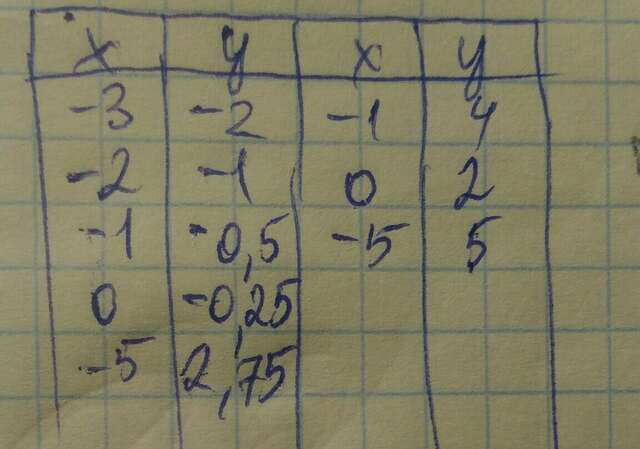 x y x y
-3 -2 -1 4
-2 -1 0 2
-1 -0,5 -5 5
0 -0,25
-5 2,75